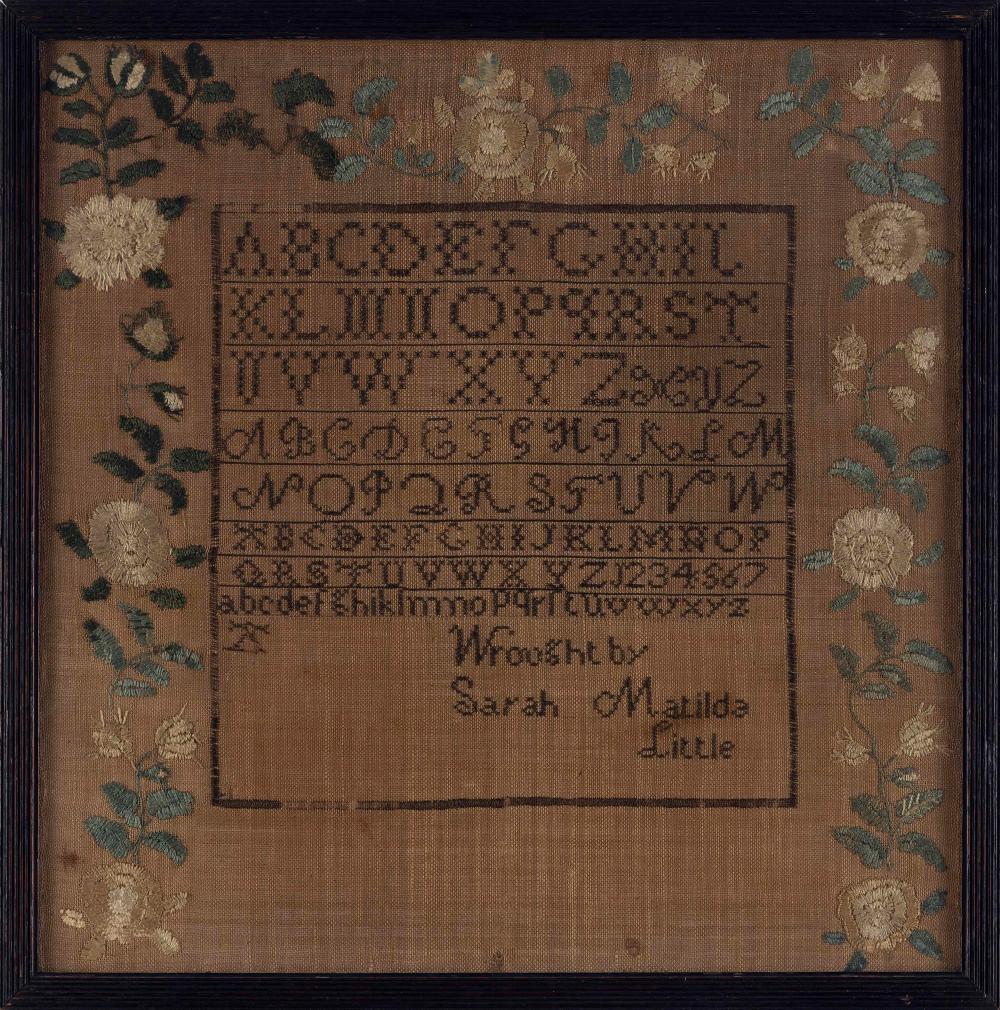 A B C D E F G H I J
K L M N O P q R S T
U V W X Y Z X Y Z
A B C D E F G H I K L M
N O P Q R S T U V W
X B C D E F G H I J K L M N O P
Q R S T U V W X Y Z 1 2 3 4 5 6 7
a b c d e f g h i k l m n o p q r ſ t u v w x y z
Wrought by
Sarah Matilda
Little